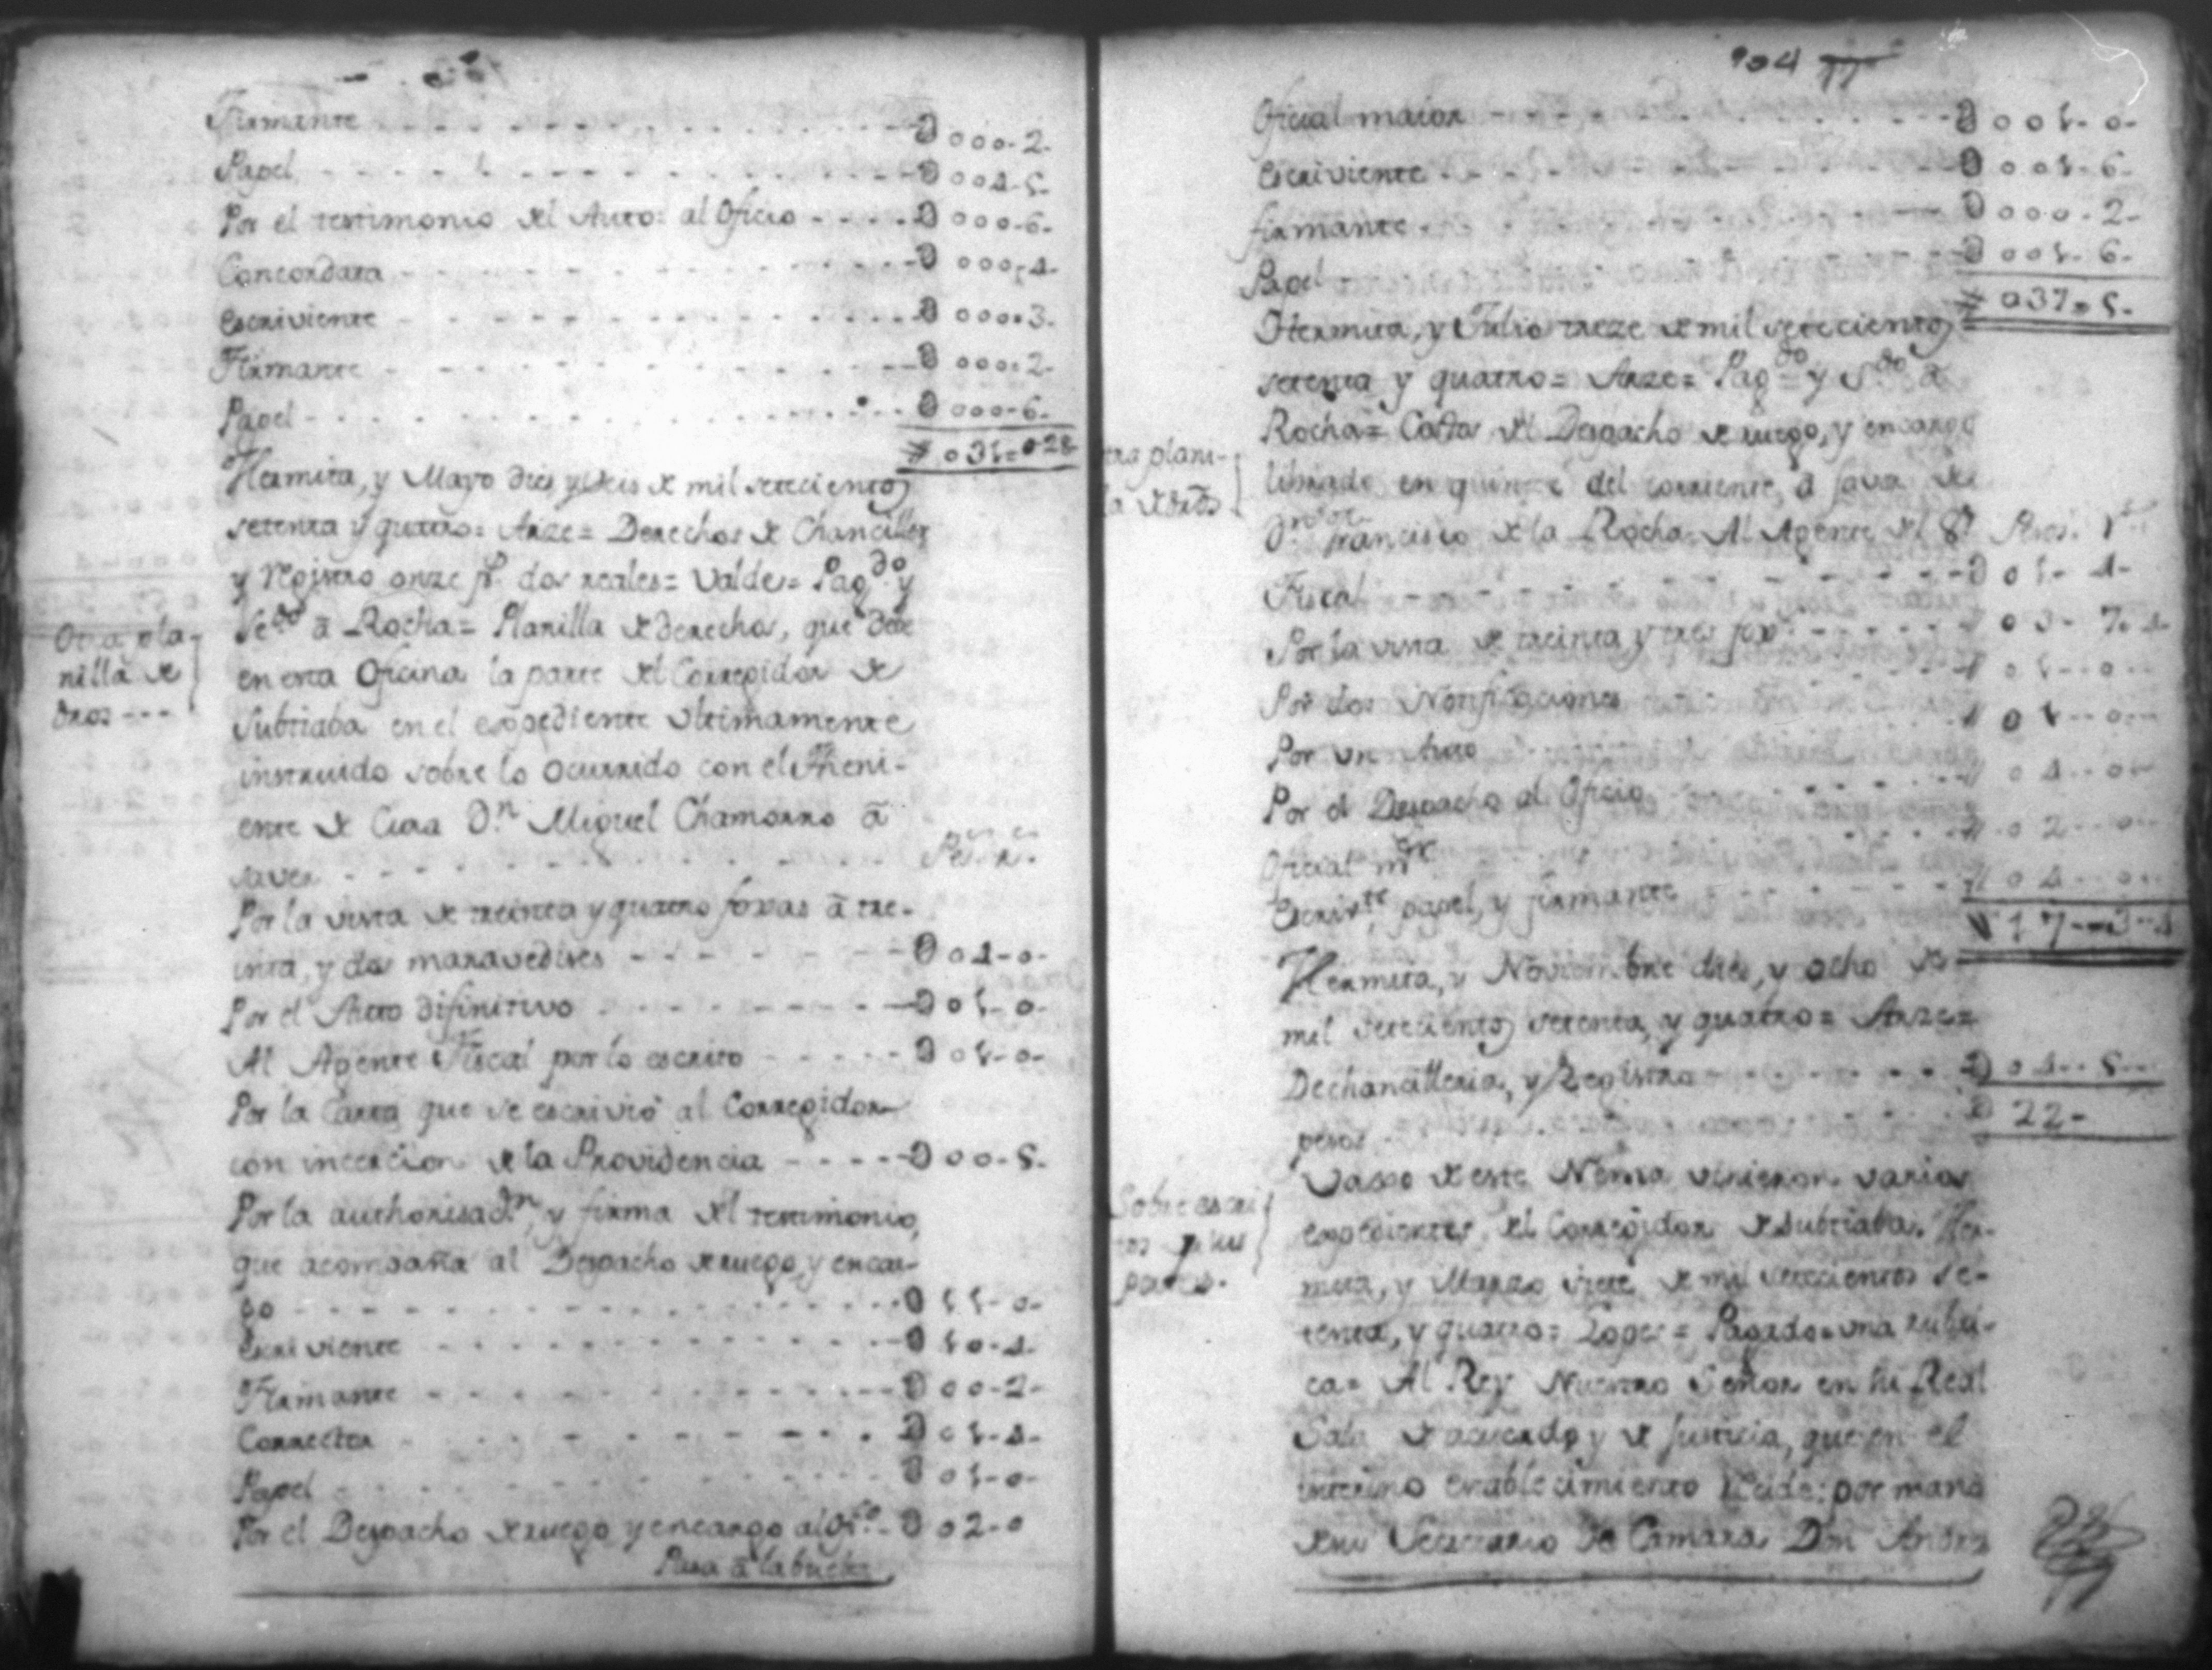 Firmante - - - - - - - - - - 0 000.2.
Papel - - - - - - - - - - 0 004-5.
Por el testimonio del Auto: al Oficio - - - - 0 000-6.
Concordara - - - - - - - - 0 000,4.
Escriviente - - - - - - - - 0 000.3.
Firmante - - - - - - - - 0 000.2.
Papel - - - - - - - - 0 000-6.
031=028
Hermita, y Mayo dies y seis de mil setecientos
setenta y quatro= Arze= Derechos de Chanciller
y registro onze ps. dos reales= Valdes= Pagdo. y
Otra pla-
nilla de
dros ---
Sedo. â Rocha= Planilla de derechos, que deve
en esta Oficina la parte del Corregidor de
Subtiaba en el expediente ultimamente
instruido sobre lo ocurrido con el Theni-
ente de Cura Dn. Miguel Chamorro â
saver - - - - - - - - Ps. rs.
Por la vista de treinta y quatro foxas â tre-
inta, y dos maravedises - - - - - 0 04-0-
Por el Auto difinitivo - - - - - 0 01-0-
Al Agente Fiscal por lo escrito - - - - - 0 01-0-
Por la Carta que se escrivió al Corregidor
con incercion de la Providencia - - - - 0 00-5.
Por la authorisadn. y firma del testimonio,
que acompaña al Despacho de ruego y encar-
go - - - - - - - - - - 0 11-0-
Escriviente - - - - - - - - 0 10-4.
Firmante - - - - - - - - 0 00-2-
Corrector - - - - - - - - 0 01-4-
Papel - - - - - - - - 0 01-0-
Por el Despacho de ruego y encargo al Ofo. - 0 02-0
Pasa â la buelta
904 77
Oficial maior - - - - - - - - 0 001-0-
Escriviente - - - - - - - - 0 001-6-
firmante - - - - - - - - 0 000-2-
Papel - - - - - - - - 0 001-6-
037=5.
Hermita, y Julio treze de mil setecientos
setenta y quatro= Arze= Pagdo= y Sdo â
Rocha= Costas del Despacho de ruego, y encargo
tra plani-
la de dros
librado en quinze del corriente, â favor de
Dn. Francisco de la Rocha= Al Agente del Sor. Pesos. rs.
Fiscal - - - - - - - - 0 01-4-
Por la vista de treinta y tres fox. - - - - - 03-7.4.
Por dos Notificaciones 01--0--
Por un Auto 01--0--
Por el Despacho al Oficio - - - - - 04--0--
Oficial mor - - - - 02--0--
Escrivte. papel, y firmante 04--0--
17--3-4
Hermita, y Noviembre dies, y ocho de
mil setecientos setenta, y quatro= Arze=
Dechancilleria, y Registro - - - - - 0 04--5--
pesos 22-
Vaxo de este Nema vinieron varios
Sobre escri-
tos y sus
partes.
expedientes del Corregidor de Subtiaba. Her-
mita, y Marzo siete de mil setecientos se-
tenta, y quatro= Lopes= Pagado= una rubri-
ca= Al Rey Nuestro Señor en su Real
Sala de acuerdo, y de Justicia, que en el
interino establecimiento recide: por mano
de su Secretario de Camara Don Andres